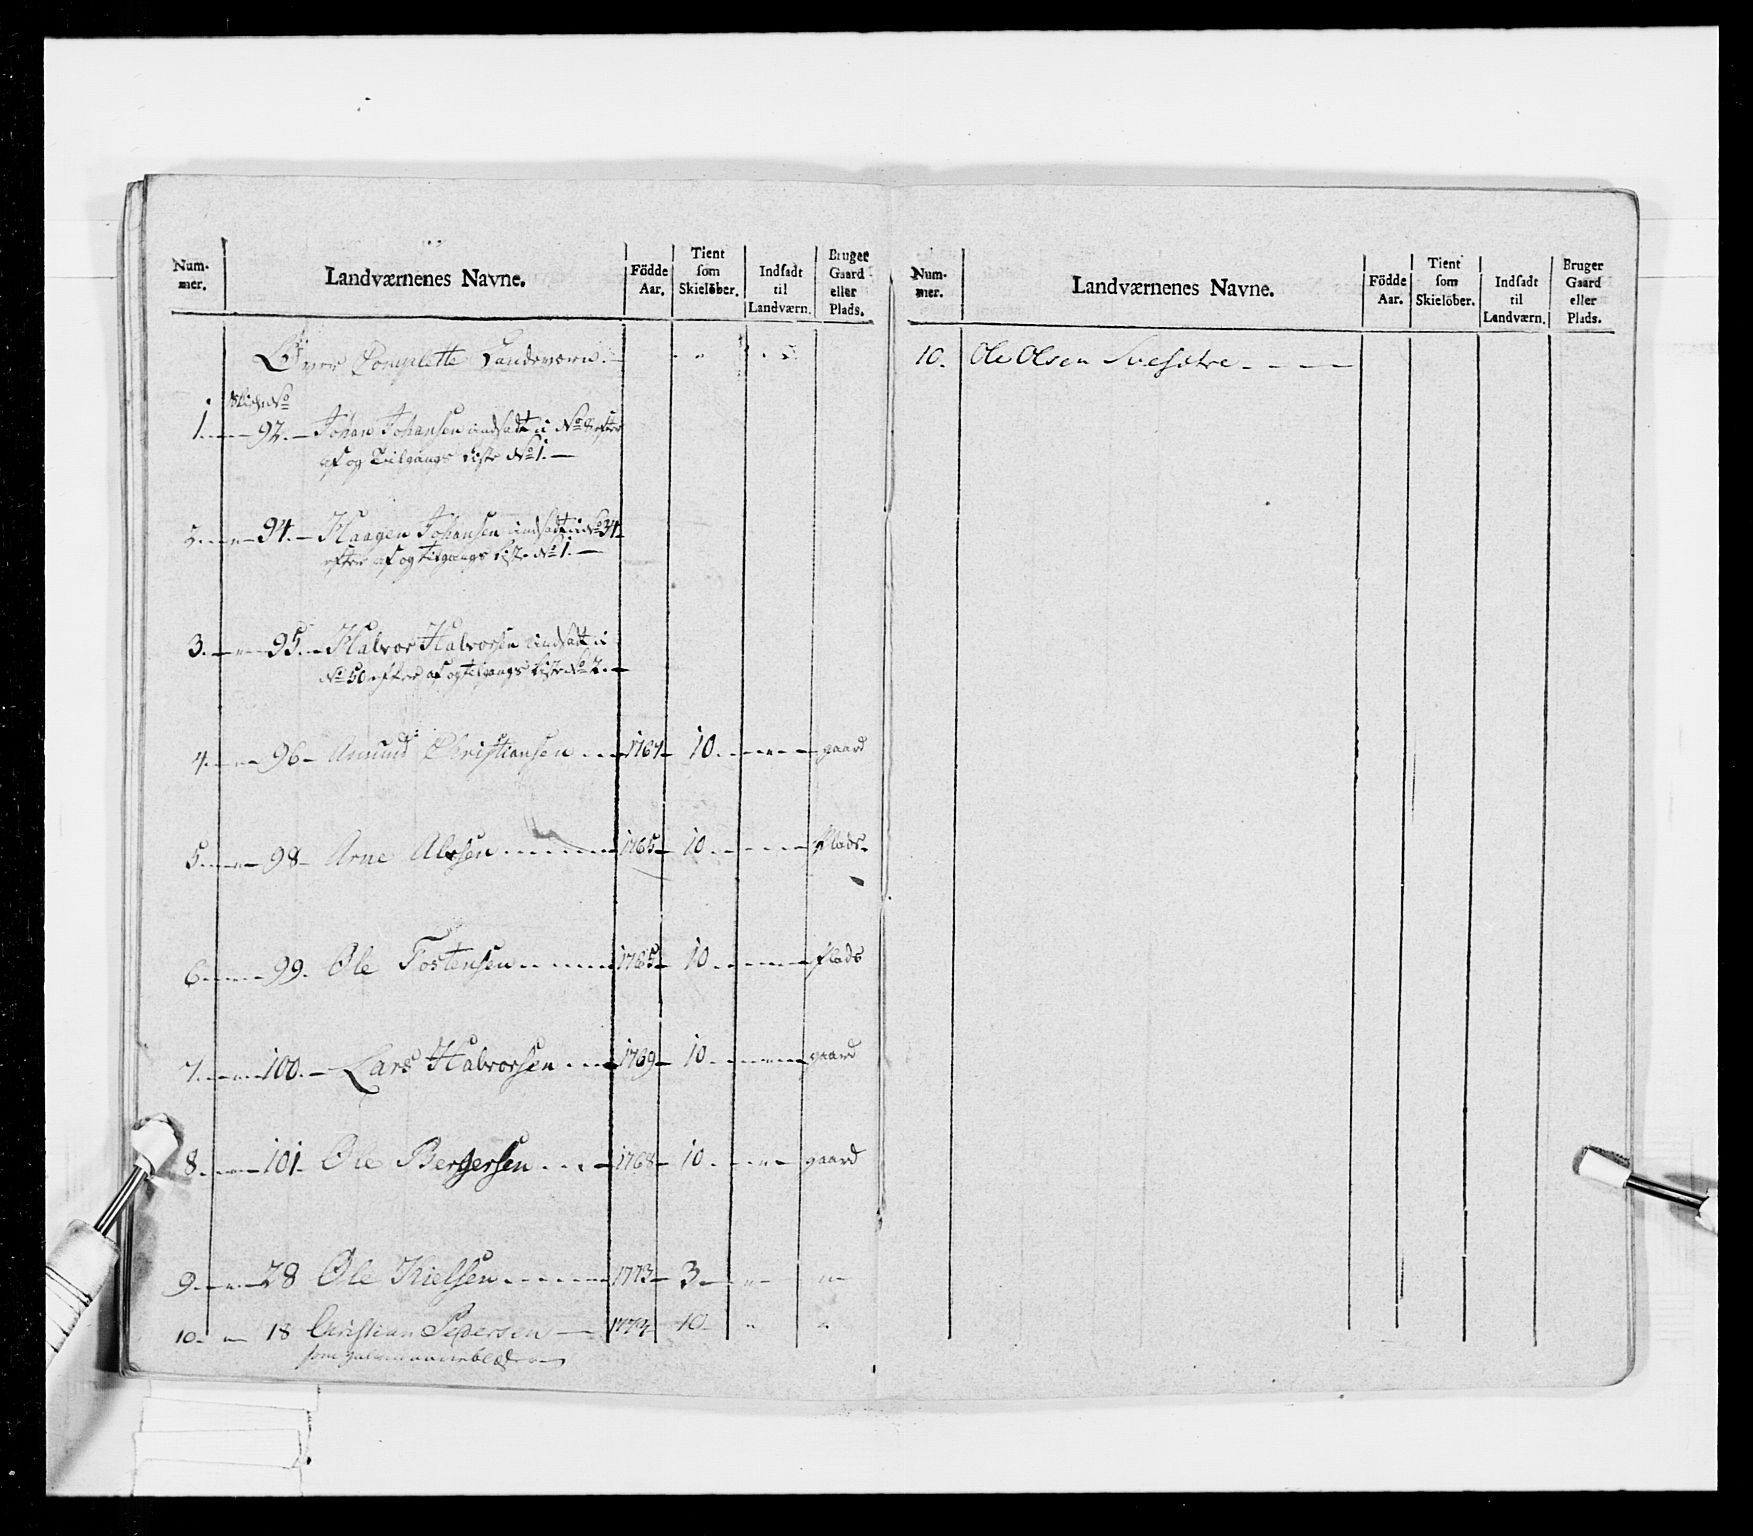 Num-
mer.
Landværnenes Navne.
Födde
Aar.
Tient
som
Skielöber.
Indsadt
til
Landværn.
Bruger
Gaard
eller
Plads.
Over Complette Landeværn.
1. 92. Johan Johansen indsadt i No 8 efter
af og Tilgangs Liste No 1.
2. 94. Haagen Johansen indsadt i No 34
efter af og tilgangs Liste No 1.
3. 95. Halvor Halvorsen indsadt i
No 50 efter af og tilgangs Liste No 2.
4. 96 Amund Christiansen 1764 10 gaard
5. 98 Arne 1765 10 Plads
6. 99. Ole Tostensen 1765 10 Plads
7. 100. Lars Halvorsen 1769 10 gaard
8. 101. Ole Bergersen 1768 10. gaard
9. 28 Ole Nielsen 1773 3 " "
10. 18 Christian Pedersen 1773 10 " "
Num-
mer.
Landværnenes Navne.
Födde
Aar.
Tient
som
Skielöber.
Indsadt
til
Landværn.
Bruger
Gaard
eller
Plads.
10. Ole Olsen